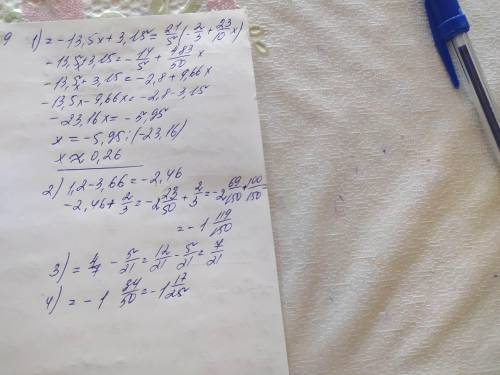 9 1) = -13,5x + 3,15 = 21/5 (-2/3 + 23/10 x)
-13,5x + 3,15 = -14/5 + 483/50 x
-13,5x + 3,15 = -2,8 + 9,66x
-13,5x - 9,66x = -2,8 - 3,15
-23,16x = -5,95
x = -5,95 : (-23,16)
x ≈ 0,26
2) 1,2 - 3,66 = -2,46
-2,46 + 2/3 = -2 23/50 + 2/3 = -2 69/150 + 100/150
= -1 119/150
3) = 4/7 - 5/21 = 12/21 - 5/21 = 7/21
4) = -1 34/50 = -1 17/25